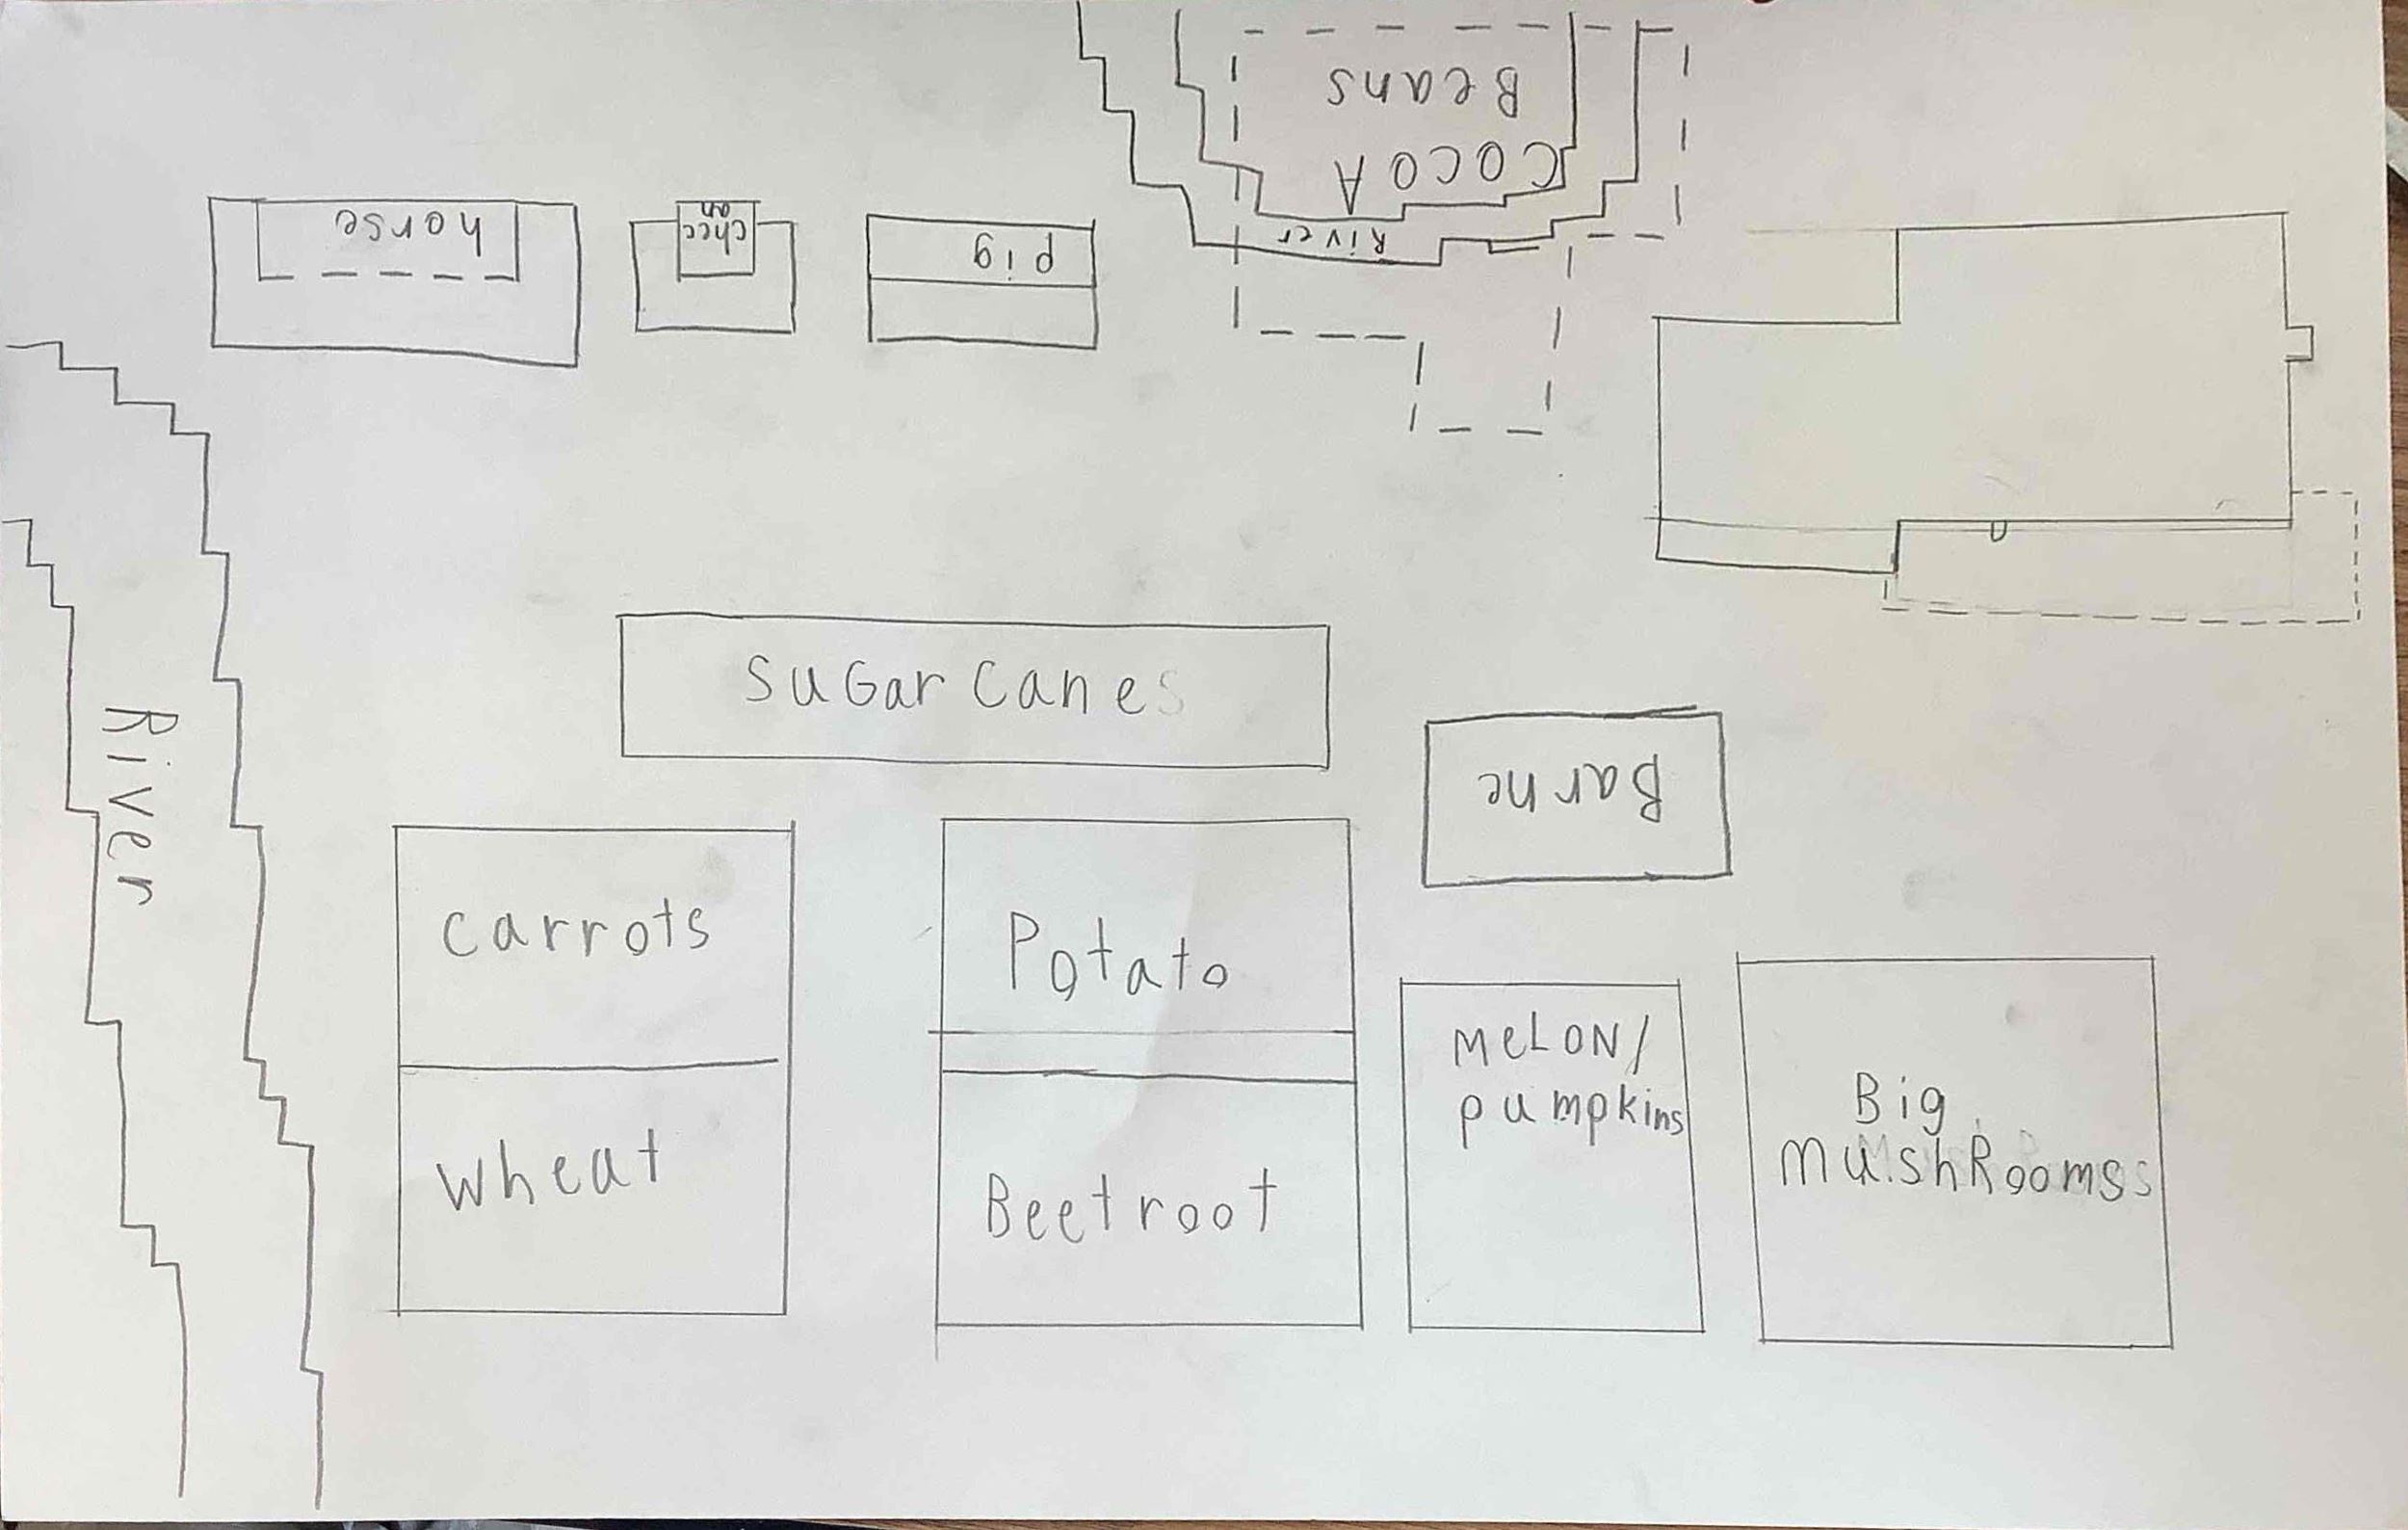 Beans
COCOA
River
horse
chec
an
pig
SuGar Canes
River
Barne
carrots
Potato
MeLON/
pumpkins
Big
MushRooms
wheat
Beetroot